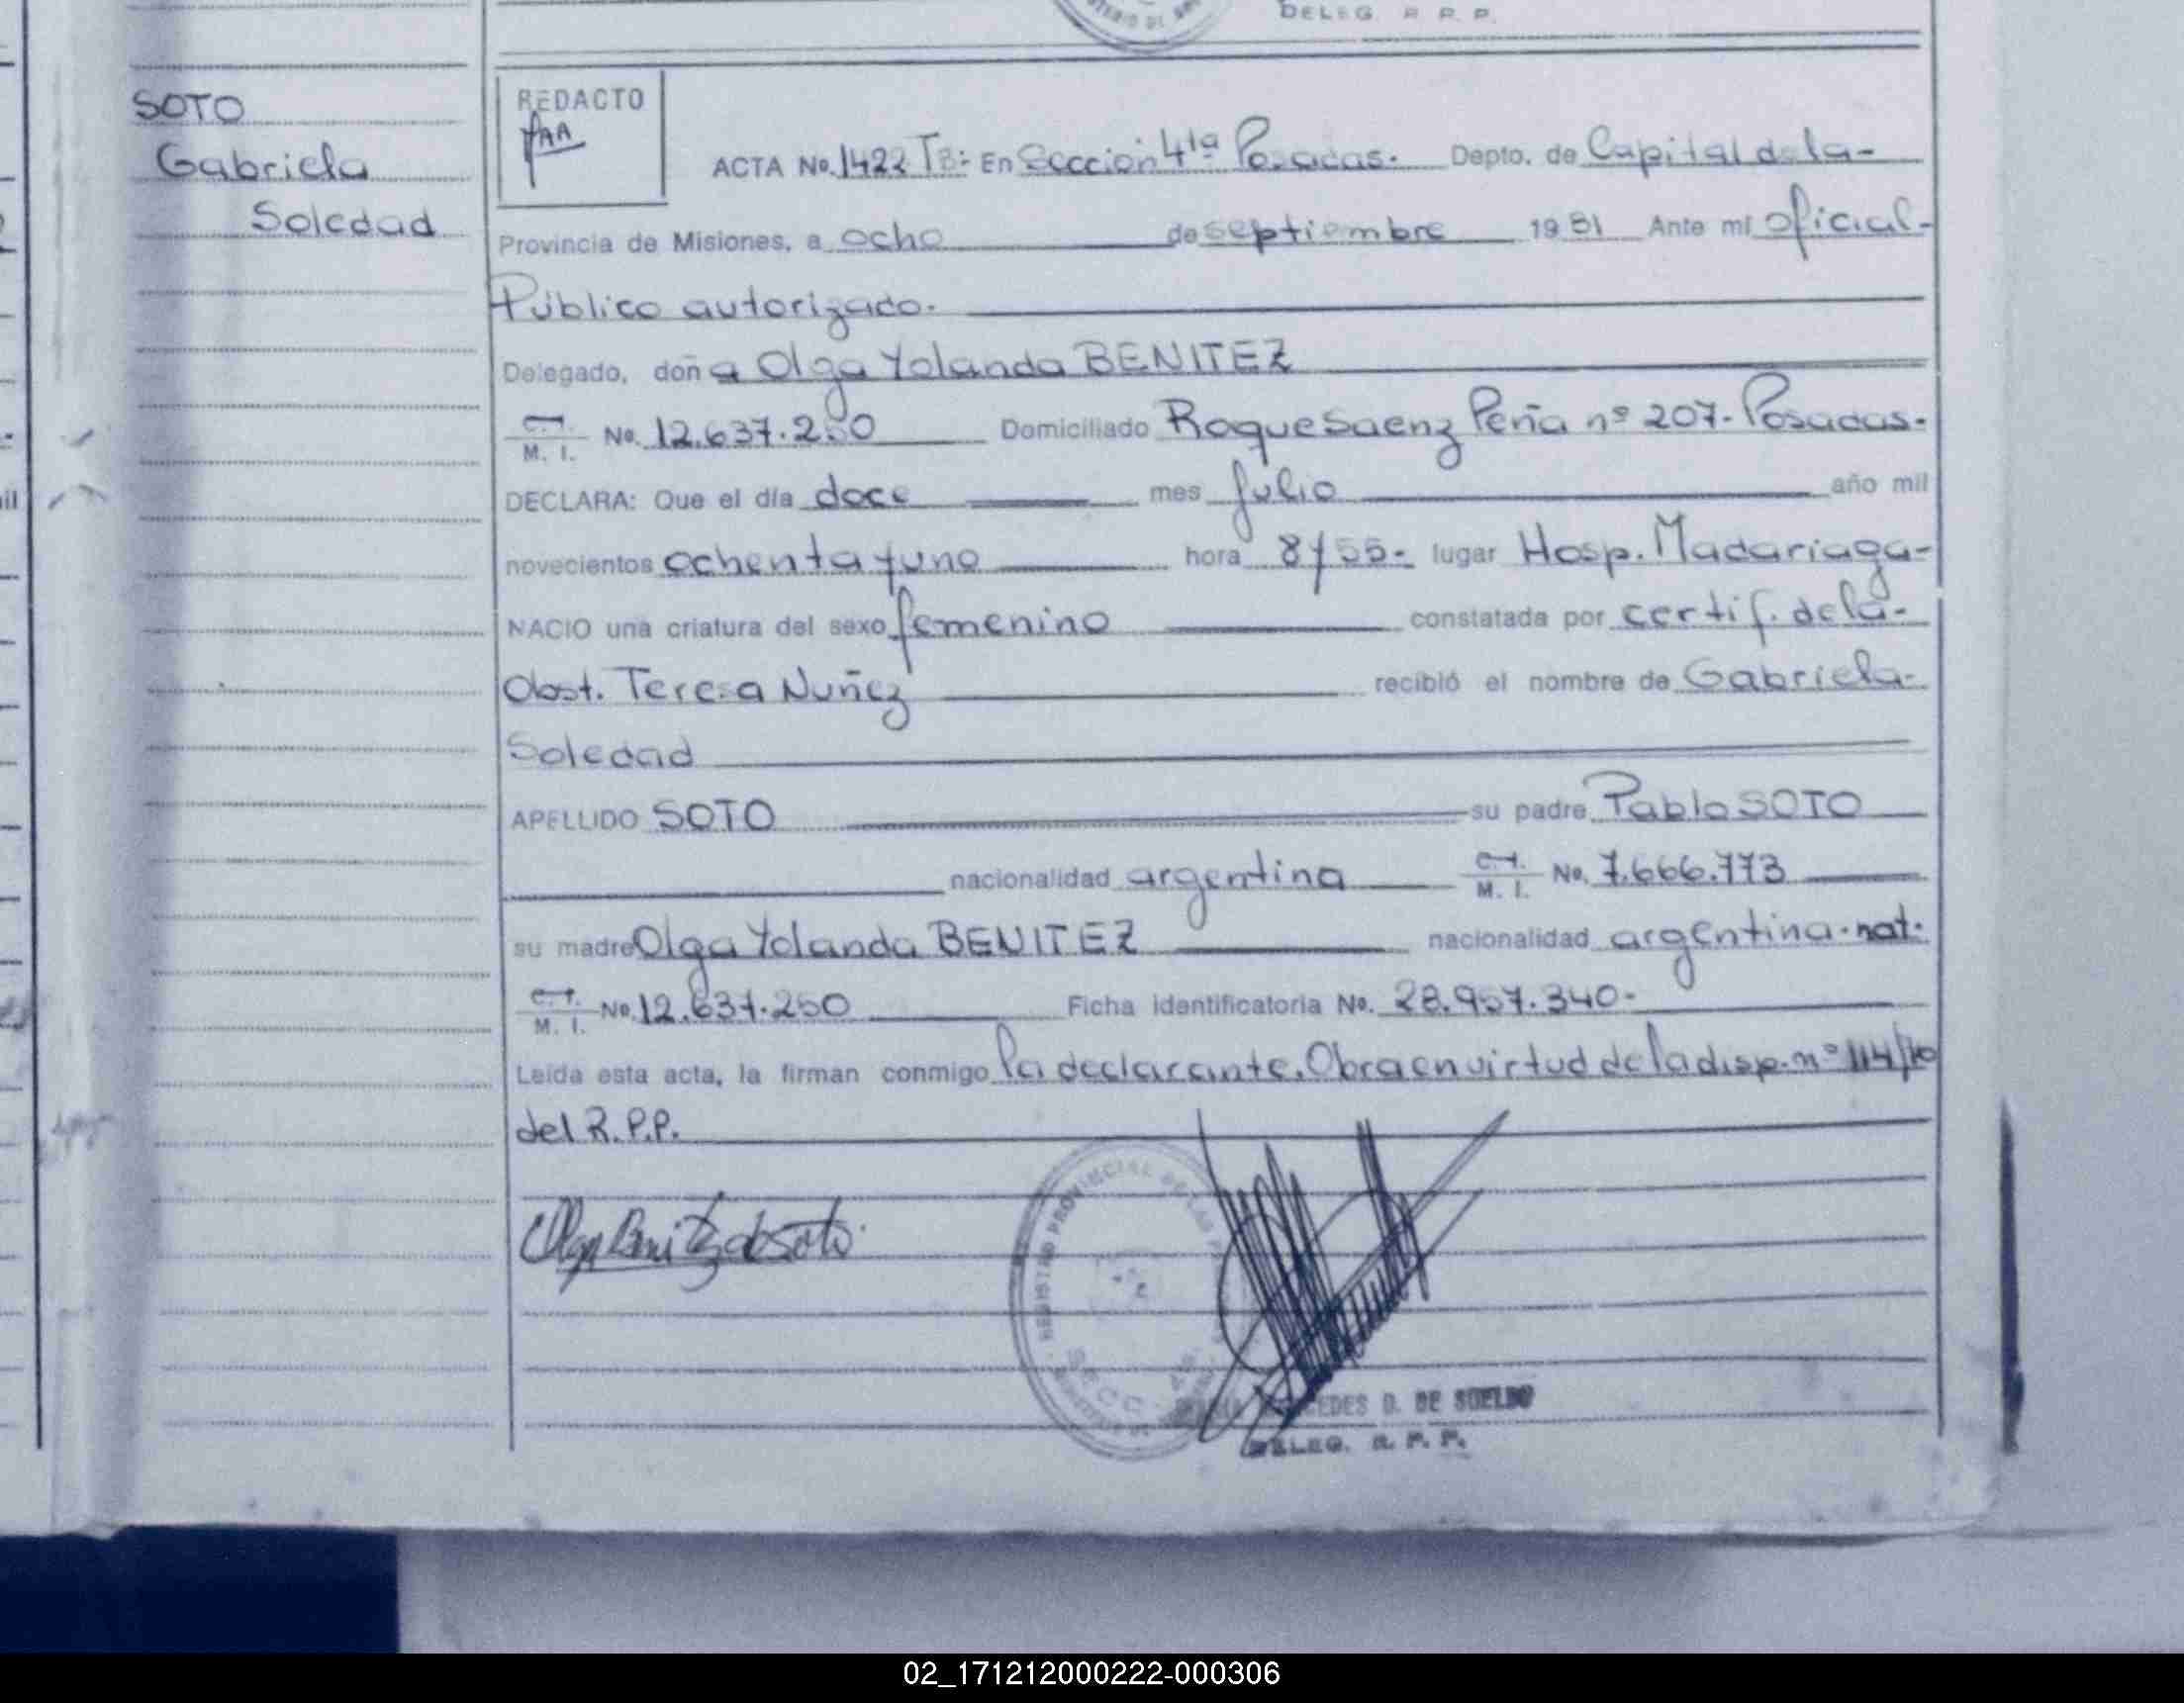 DELEG. R. P. P.
SOTO
Gabriela
Soledad
REDACTO
ACTA No. 1422 TB:- En Sección 4ta Posadas.- Depto. de Capital de la-
Provincia de Misiones, a ocho de septiembre 1981 Ante mí oficial-
Público autorizado.-
Delegado, doña Olga Yolanda BENITEZ
C.I. M. I. No. 12.637.250 Domiciliado Roque Saenz Peña nº 207- Posadas.-
DECLARA: Que el día doce mes julio año mil
novecientos ochenta y uno hora 8/55- lugar Hosp. Madariaga-
NACIO una criatura del sexo femenino constatada por certif. de la-
Obst. Teresa Nuñez recibió el nombre de Gabriela-
Soledad
APELLIDO SOTO su padre Pablo SOTO
nacionalidad argentina C.I. M. I. No. 7.666.773
su madre Olga Yolanda BENITEZ nacionalidad argentina-nat.
C.I. M. I. No. 12.637.250 Ficha identificatoria No. 28.957.340-
Leída esta acta, la firman conmigo la declarante. Obra en virtud de la disp. nº 114/
del R.P.P.
Olga Benitez de Soto
REGISTRO PROVINCIAL DE LAS
SECC
D. DE SUELDO
DELEG. R. P. P.
02_171212000222-000306